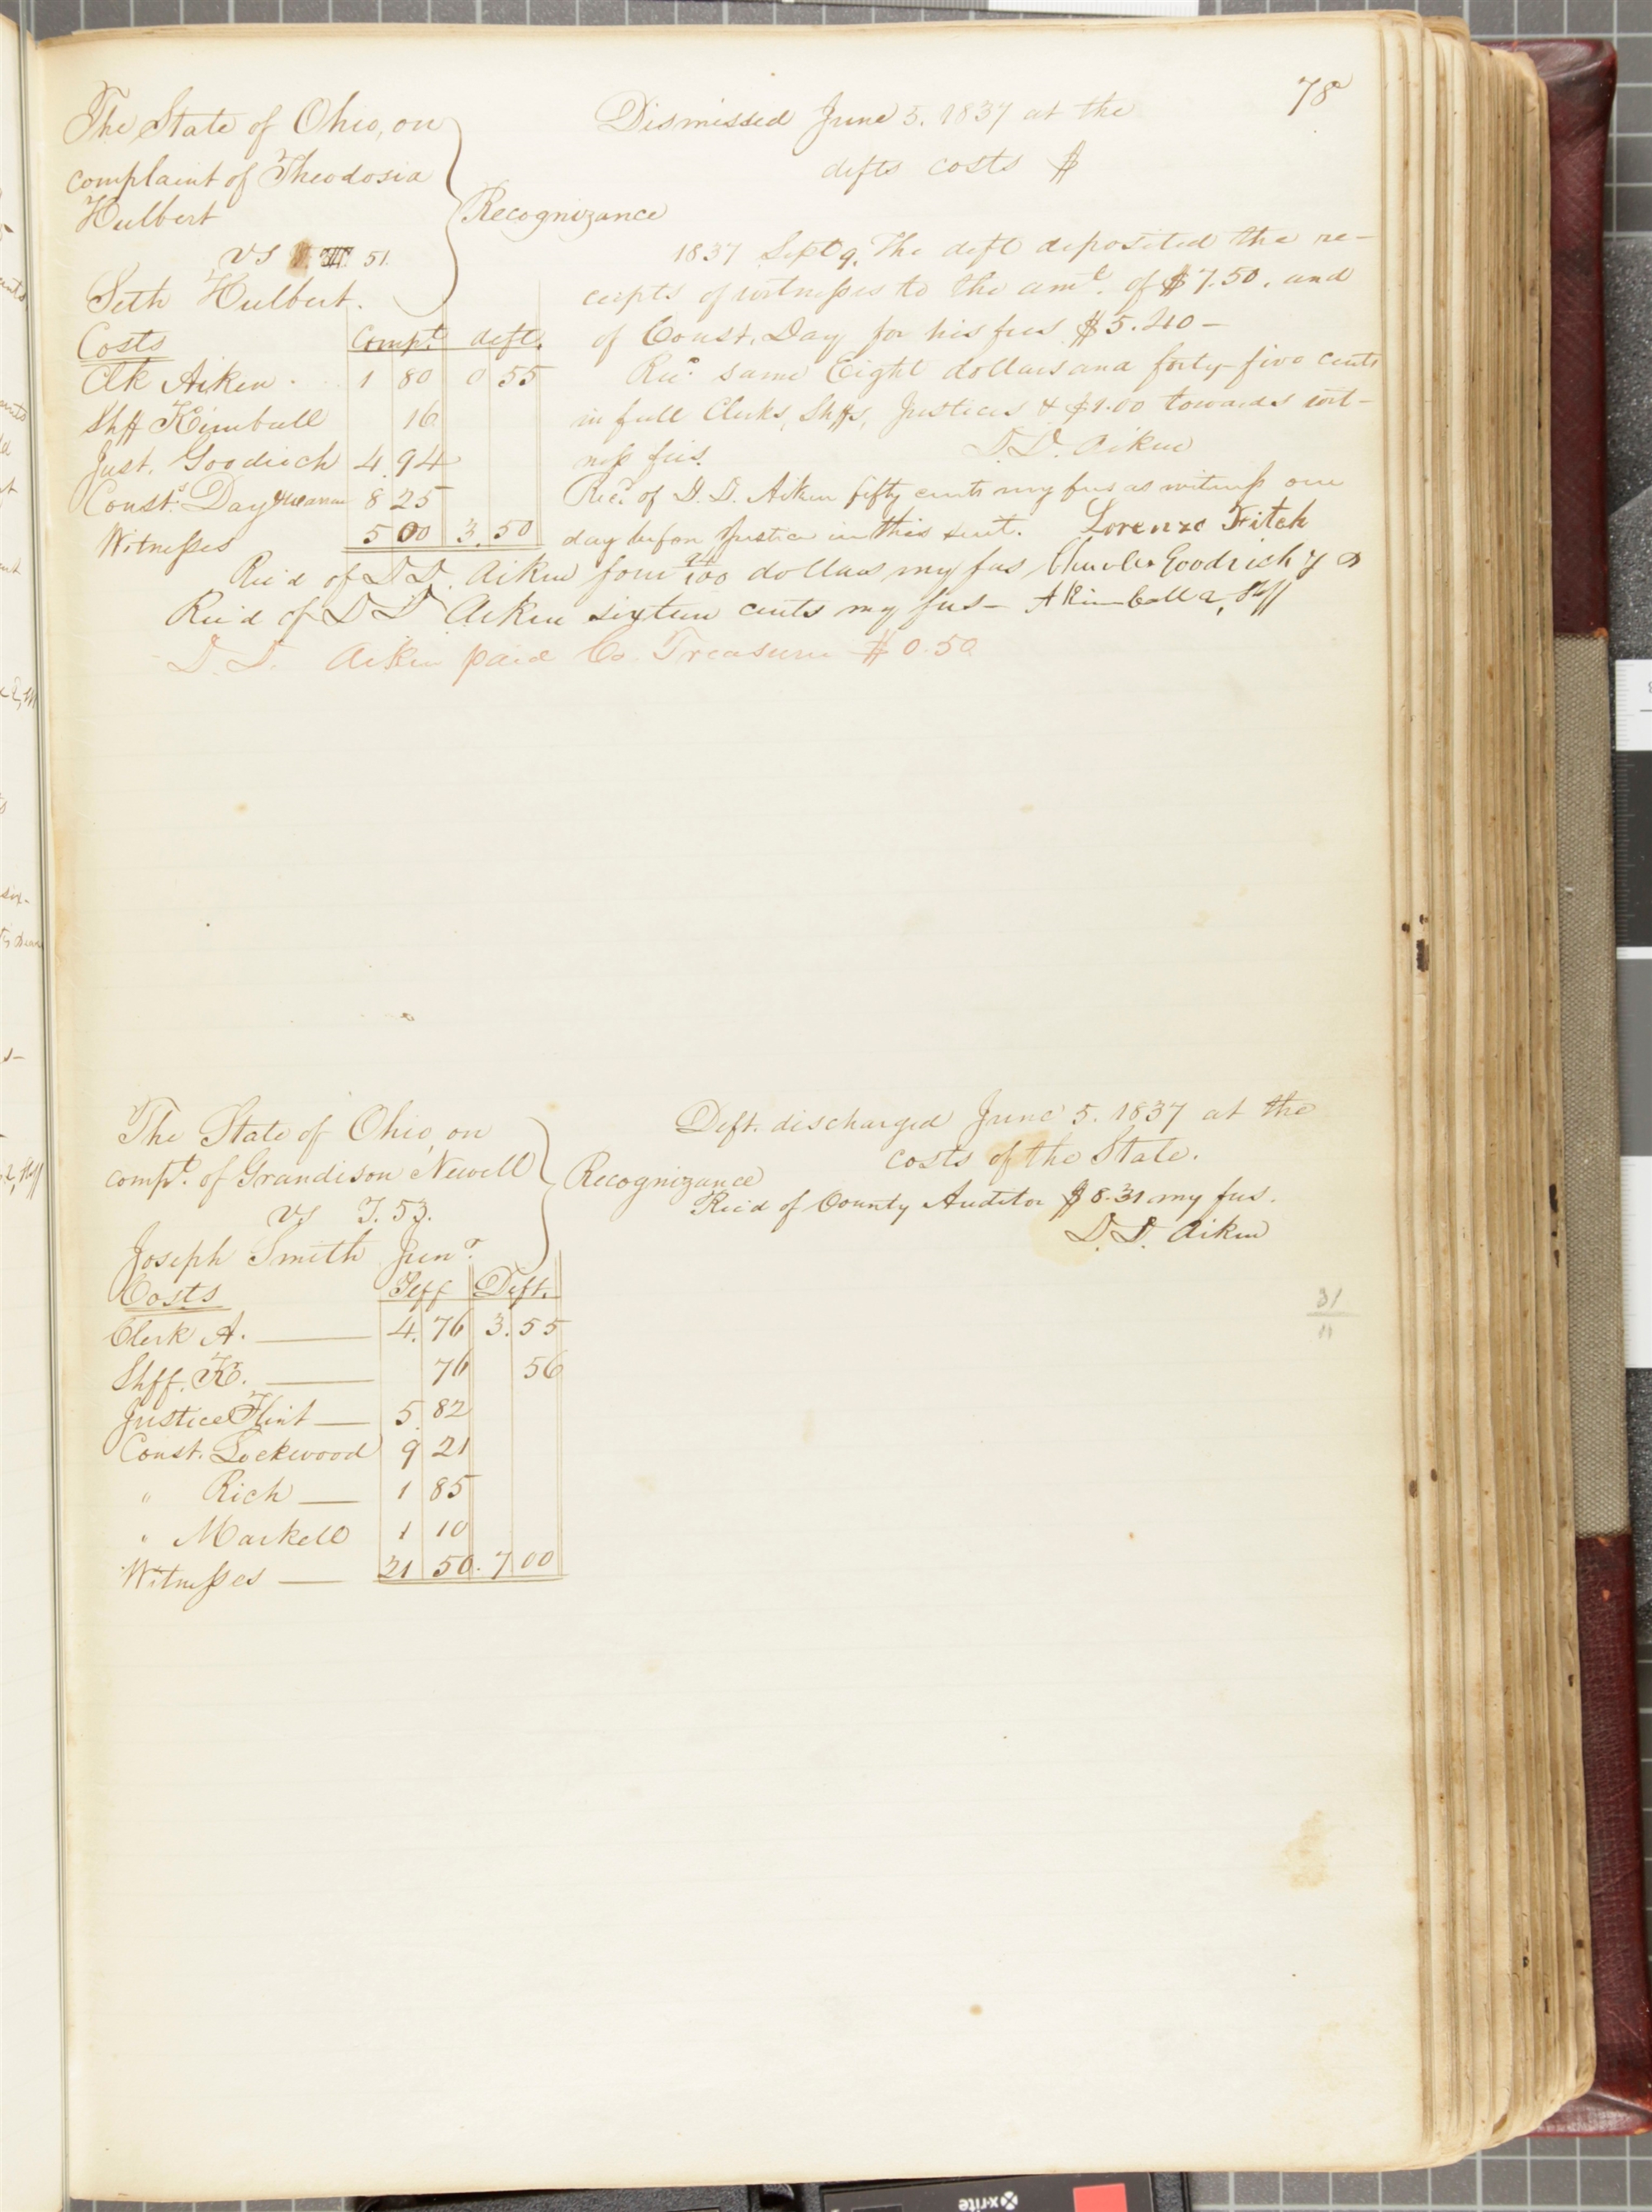 78
The State of Ohio, on
complaint of Theodosia
Hulbert
vs 51.
Seth Hulbert.
Recognizance
Dismissed June 5. 1837 at the
defts costs $
1837 Sept 9. The deft deposited the re-
ceipts of witnesses to the amt. of $7.50, and
of Const. Day for his fees $5.40-
Rec. same Eight dollars and forty-five cents
in full Clerks, Shffs, Justices & $1.00 towards wit-
ness fees. D.D. Aiken
Costs Compt. deft.
Clk Aiken. 1 80 0 55
Shff Kimball 16
Just. Goodrich 4.94
Const. Day 8 25
Witnesses 5 00 3.50
Rec. of D. D. Aiken fifty cents my fees as witness one
day before Justice in this suit. Lorenzo Fitch
Rec'd of D D. Aiken four 94/100 dollars my fees Charles Goodrich
Rec'd of D D Aiken sixteen cents my fees- A Kimball 2, Shff
D. D. Aiken paid Co. Treasurer $0.50
The State of Ohio, on
compt. of Grandison Newell
vs T. 53.
Joseph Smith Junr.
Recognizance
Deft. discharged June 5. 1837 at the
costs of the State.
Rec'd of County Auditor $8.31 my fees.
D. D. Aiken
Costs Plff Deft.
Clerk A. 4.76 3.55
Shff. K. 76 56
Justice Flint 5.82
Const. Lockwood 9 21
" Rich 1 85
" Markell 1 10
Witnesses 21 50. 7 00
31
x-rite